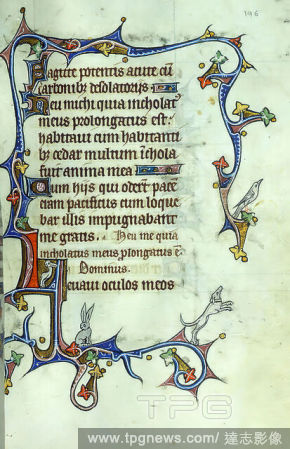 196
Sagitte potentis acute cū
carbonibȝ desolatorijs
Heu michi quia incholatꝰ
meus prolongatus est:
habitaui cum habitantibȝ
cedar multum īcola
fuit anima mea
Cum hijs qui oderūt pacē
eram pacificus cum loque
bar illis impugnabant
me gratis. Heu me quia
incholatus meus prolongatus ē
Dominus.
Leuaui oculos meos
TPG
www.tpgnews.com/ 達志影像